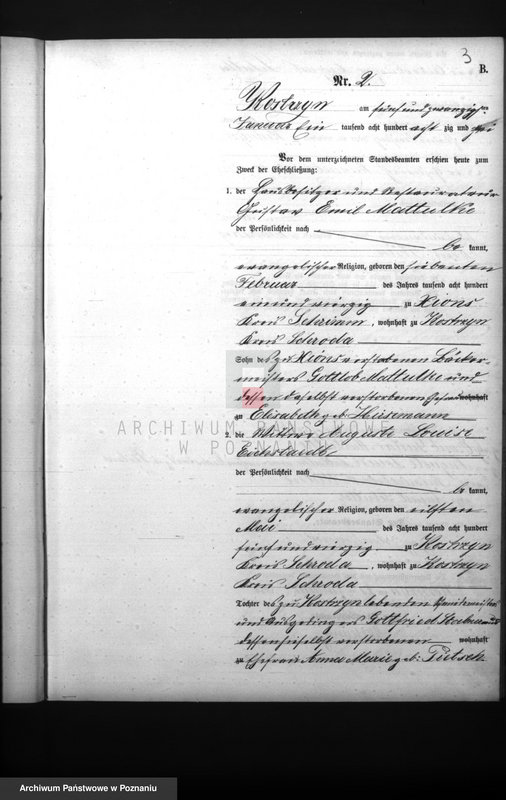 3
B.
Nr. 2.
Kostrzyn am fünfundzwanzigsten
Januar Ein tausend acht hundert acht zig und
Vor dem unterzeichneten Standesbeamten erschien heute zum
Zweck der Eheschließung:
1. der Hausbesitzer und Restaurateur
Gustav Emil Mattulke
der Persönlichkeit nach
be kannt,
evangelischer Religion, geboren den siebenten
Februar des Jahres tausend acht hundert
einundvierzig zu Xions
Kreis Schrimm, wohnhaft zu Kostrzyn
Kreis Schroda
Sohn des zu Xions verstorbenen Bäcker-
meisters Gottlob Mattulke und
dessen daselbst verstorbenen wohnhaft
zu Elisabeth geb. Hüsemann
2. die Wittwe Auguste Louise
der Persönlichkeit nach
be kannt,
evangelischer Religion, geboren den eilften
Mai des Jahres tausend acht hundert
fünfundvierzig zu Kostrzyn
Kreis Schroda, wohnhaft zu Kostrzyn
Kreis Schroda
Tochter des zu Kostrzyn lebenden
und Ausgedingers Gottfried
dessen hieselbst verstorbenen wohnhaft
zu Ehefrau Anna Marie geb. Tietsch
ARCHIWUM PAŃSTWOWE
W POZNANIU
Archiwum Państwowe w Poznaniu